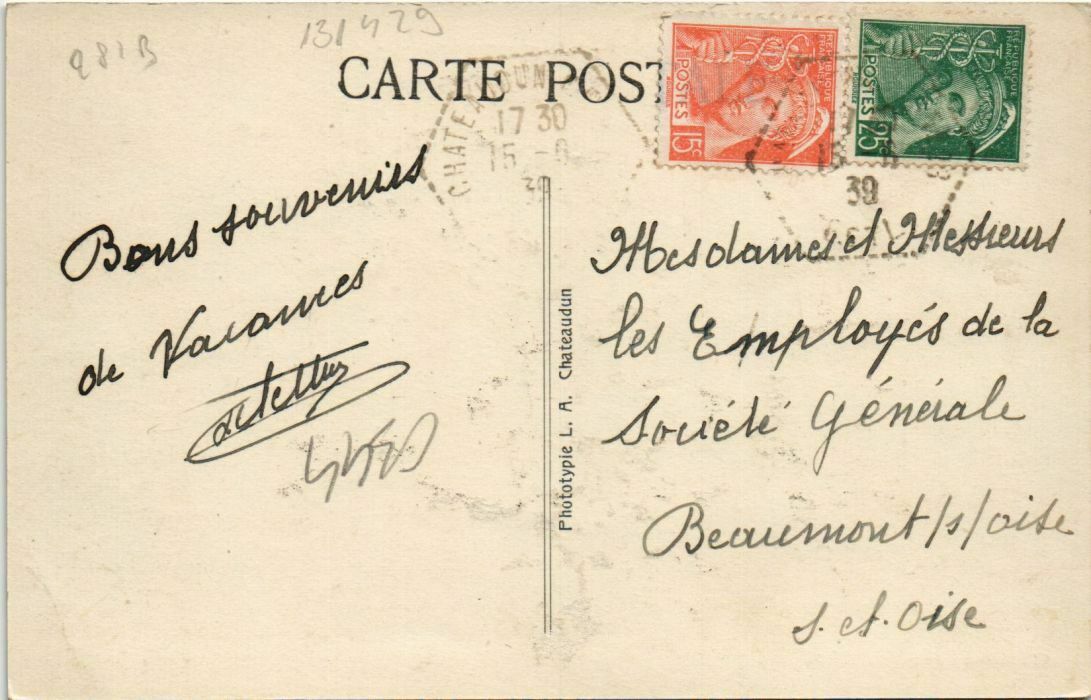 281B
131429
CARTE POST
CHATEAUDUN
17 30
15 -6
39
RÉPUBLIQUE FRANÇAISE
POSTES
15c
RÉPUBLIQUE FRANÇAISE
POSTES
25c
39
Bons souvenirs
de Vacances
Phototypie L. A. Chateaudun
Mesdames et Messieurs
les Employés de la
Société Générale
Beaumont/s/oise
S. et. Oise